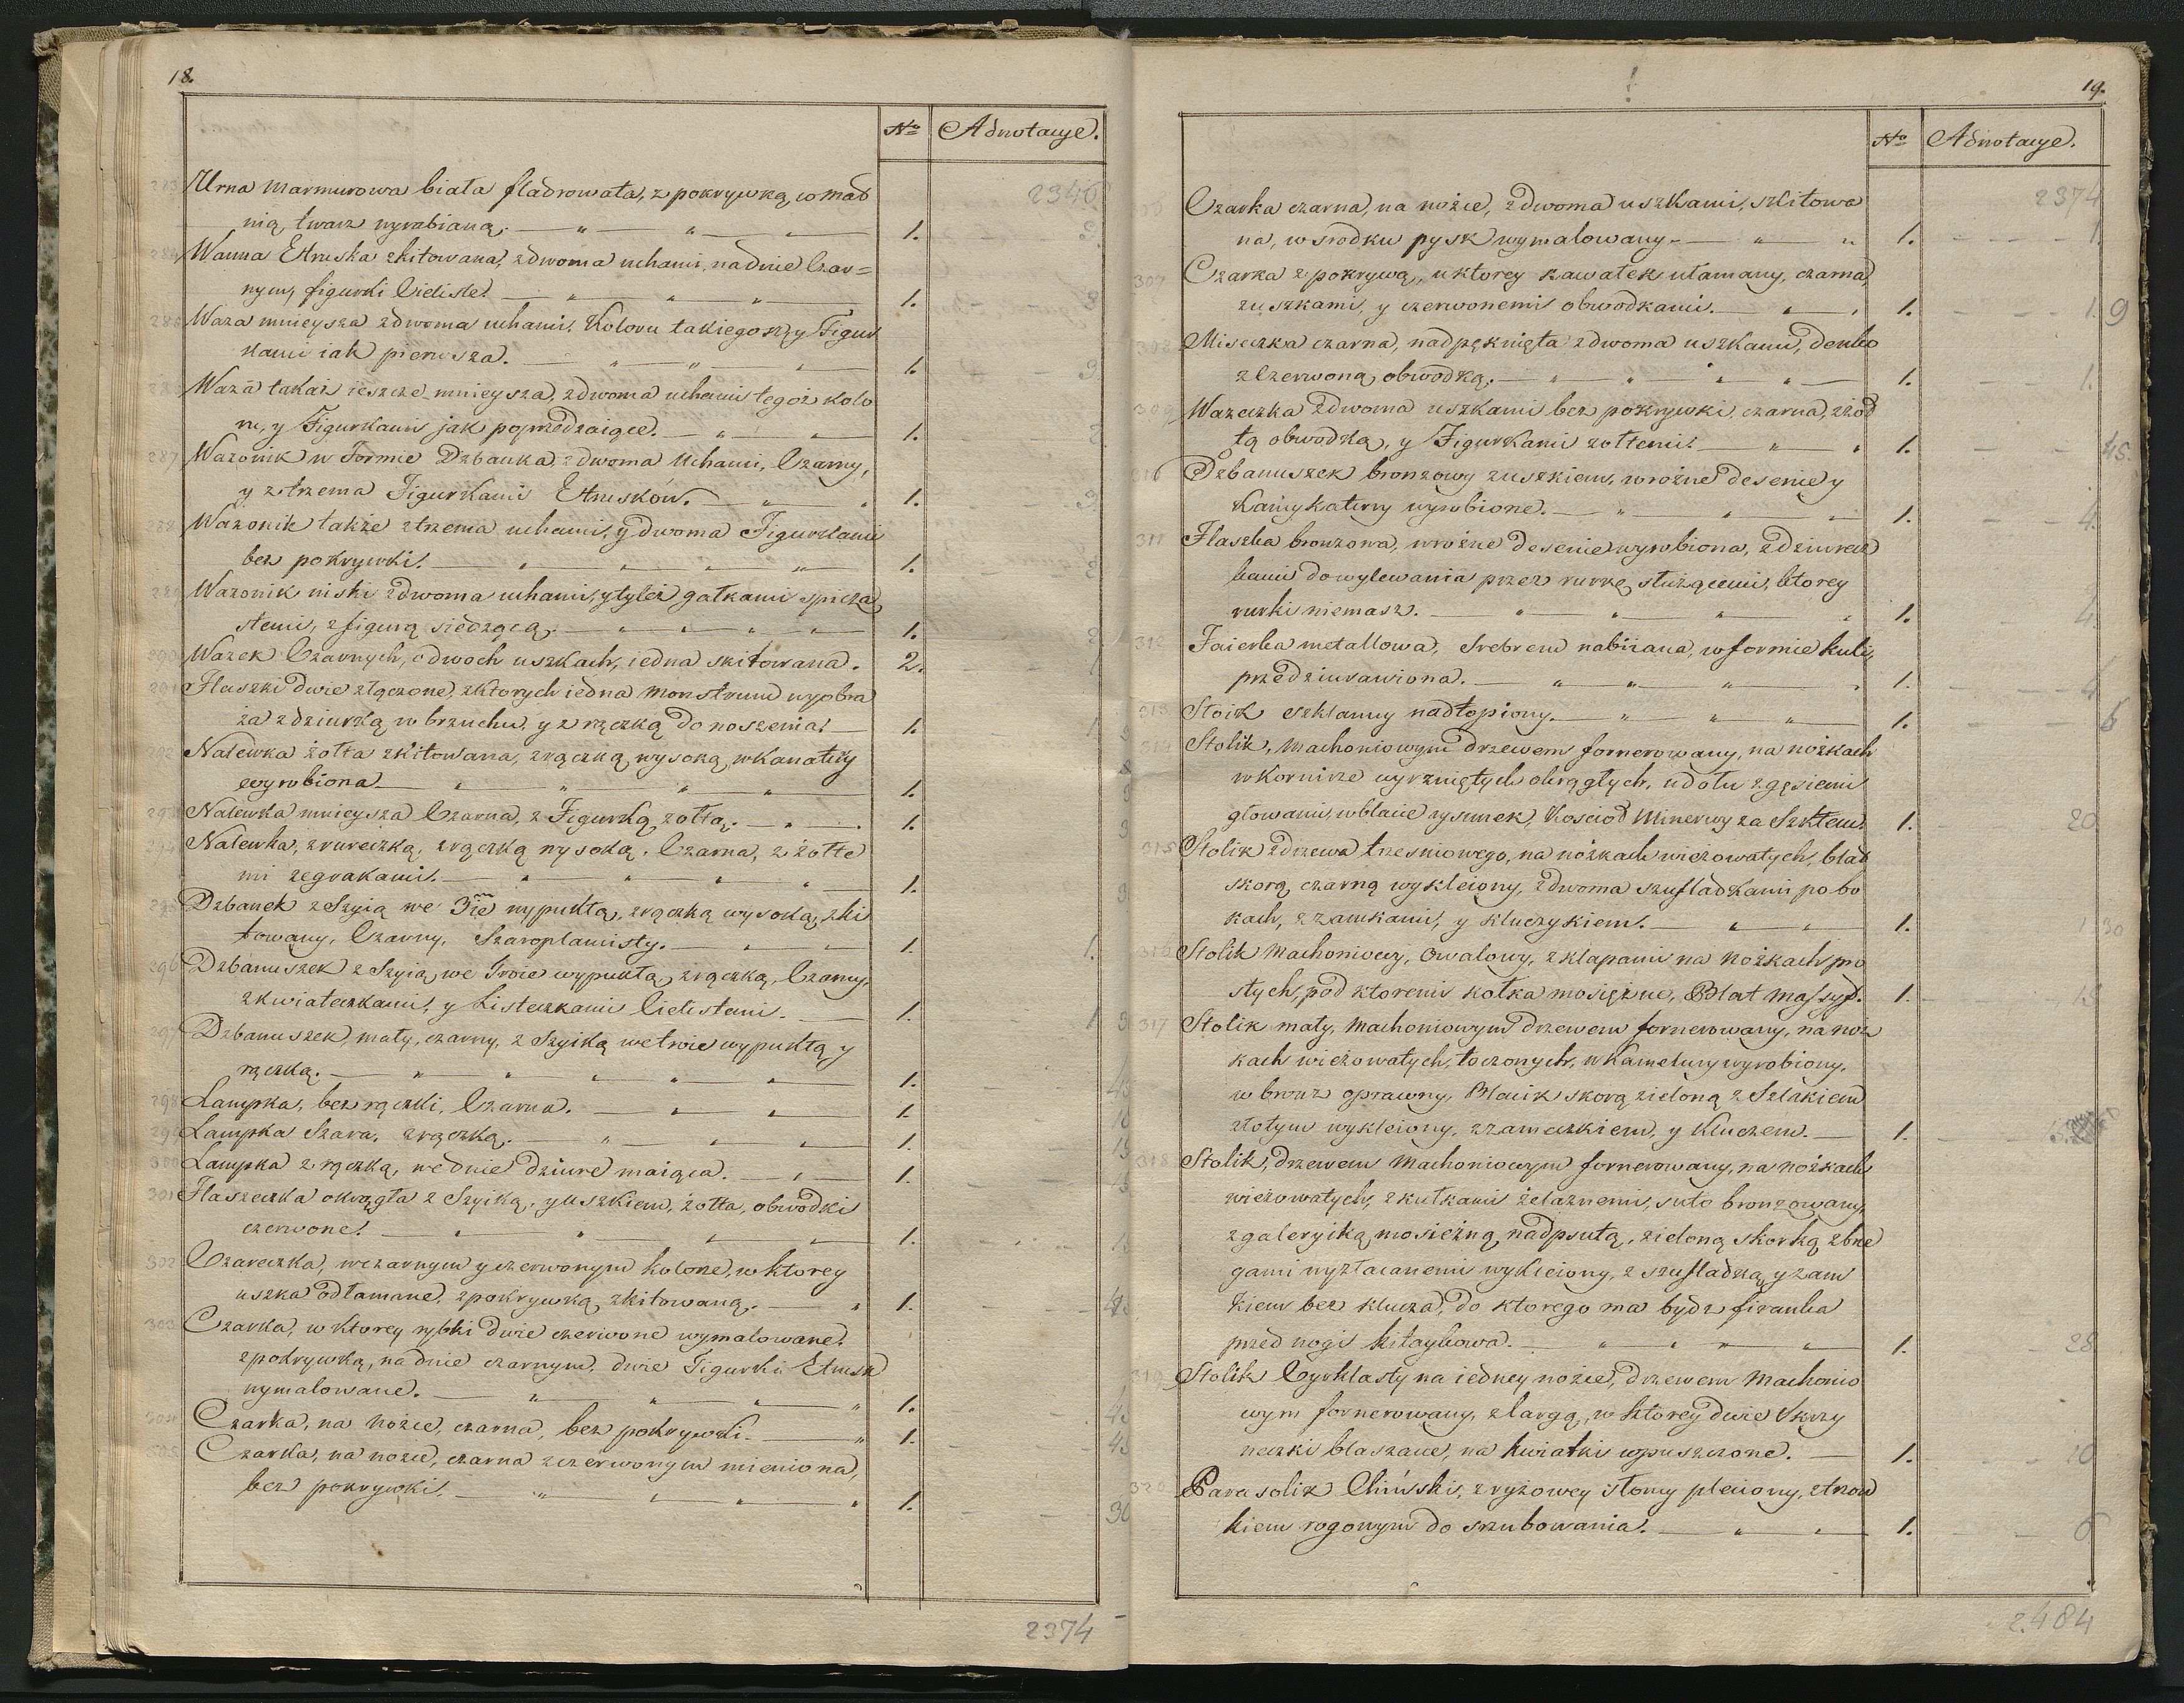 18.
No Adnotacye.
2340
283 Urna marmurowa biała fladrowata, z pokrywką, w mad
nią, twarz wyrabianą. 1.
284 Wanna Etruska zkitowana, z dwoma uchami, na dnie Czar=
nym, figurki Cieliste. 1.
285 Waza mnieysza z dwoma uchami, Koloru takiegoż, y Figur
kami iak pierwsza. 1.
286 Waza takaż ieszcze mnieysza, z dwoma uchami tegoż kolo
ru, y Figurkami jak poprzedzaiące. 1.
287 Wazonik w Formie Dzbanka, z dwoma Uchami, Czarny,
y z trzema Figurkami Etrusków. 1.
288 Wazonik także z trzema uchami, y dwoma Figurkami
bez pokrywki. 1.
289 Wazonik niski z dwoma uchami, y tyleż gałkami spicza
stemi, z figurą siedzącą. 1.
290 Wazek Czarnych, o dwoch uszkach, iedna skitowana. 2.
291 Flaszki dwie złączone, z ktorych iedna Monstrum wyobra
ża z dziurką w brzuchu, y z rączką do noszenia. 1.
292 Nalewka żołta zkitowana, z rączką wysoką, w Kanaturry
wyrobiona 1.
293 Nalewka mnieysza Czarna, z Figurką żołtą. 1.
294 Nalewka, z rureczką, z rączką wysoką, Czarna, z żołte
mi zegrakami. 1.
295 Dzbanek z Szyią we 3ie wypukłą, z rączką wysoką, zki
towany, Czarny, Szaroplamisty. 1.
296 Dzbanuszek z Szyią, we troie wypukłą, z rączką, Czarny,
z kwiateczkami, y Listeczkami Cielistemi. 1.
297 Dzbanuszek mały, czarny, z Szyiką we troie wypukłą y
rączką. 1.
298 Lampka, bez rączki, Czarna. 1
299 Lampka Szara, z rączką. 1.
300 Lampka z rączką, we dnie dziure maiąca. 1.
301 Flaszeczka okrągła z Szyiką, y uszkiem, żołta, obwodki
czerwone. 1.
302 Czareczka, w czarnym y czerwonym kolorze, w ktorey
uszka odłamane, z pokrywką, zkitowaną. 1.
303 Czarka, w ktorey rybki dwie czerwone wymalowane,
z pokrywką, na dnie czarnym, dwie Figurki Etrusk
wymalowane. 1.
304 Czarka, na nożce, czarna, bez pokrywki. 1.
305 Czarka, na nożce, czarna z czerwonym mieniona,
bez pokrywki. 1.
2374
19.
No Adnotacye.
2374
Czarka czarna, na nożce, z dwoma uszkami, szkitowa
na, w srodku pysk wymalowany. 1.
307 Czarka z pokrywą, u ktorey kawałek ułamany, czarna,
z uszkami, y czerwonemi obwodkami. 1. 9
308 Miseczka czarna, nadpęknięta z dwoma uszkami, denko
z Czerwoną obwodką. 1.
309 Wazeczka z dwoma uszkami bez pokrywki, czarna, z żoł
tą obwodką, y Figurkami żołtemi. 1. 45.
310 Dzbanuszek bronzowy z uszkiem, w rożne desenie y
Kamykatury wyrobione. 1. 4.
311 Flaszka bronzowa, w rożne desenie wyrobiona, z dziurecz
kami do wylewania przez rurkę służącemi, ktorey
rurki niemasz. 1. 4.
312 Faierka metallowa, Srebrem nabiiana, w formie kuli,
przedziurawiona. 1. 4
313 Stoik szklanny nadtopiony. 1. 6
314 Stolik, Machoniowym drzewem fornerowany, na nożkach
w Kornirze wyrzniętych okrągłych, u dołu z gęsiemi
głowami, w blacie rysunek, Koscioł Minerwy za Szkłem. 1. 20
315 Stolik z drzewa trzesniowego, na nożkach wieżowatych, blat
skorą czarną wykleiony, z dwoma szufladkami po bo
kach, z zamkami, y kluczykiem. 1. 30
316 Stolik Machoniowy, Owalowy, z klapami na nożkach pro
stych, pod ktoremi kołka mosiężne, Blat Massyf. 1. 15
317 Stolik mały, Machoniowym drzewem fornerowany, na noż
kach wieżowatych, toczonych, w Kamelury wyrobiony,
w bronz oprawny, Blacik skorą zieloną z Szlakiem
złotym wykleiony, z zameczkiem, y Kluczem. 1.
318 Stolik, drzewem Machoniowym fornerowany, na nożkach
wieżowatych, z kulkami żelaznemi, suto bronzowany,
z galeryiką mosiężną nadpsutą, zieloną skorką z brze
gami wyzłacanemi wykleiony, z szufladką y zam
kiem bez klucza, do ktorego ma bydz firanka
przed nogi kitaykowa. 1. 28
319 Stolik Cyrklasty na iedney nożce, drzewem Machonio
wym fornerowany, z Cargą, w ktorey dwie Skrzy
neczki blaszane, na kwiatki wpuszczone. 1. 10
320 Parasolik Chiński, z ryżowey słomy pleciony, z trzon
kiem rogowym do szrubowania. 1. 6
2484